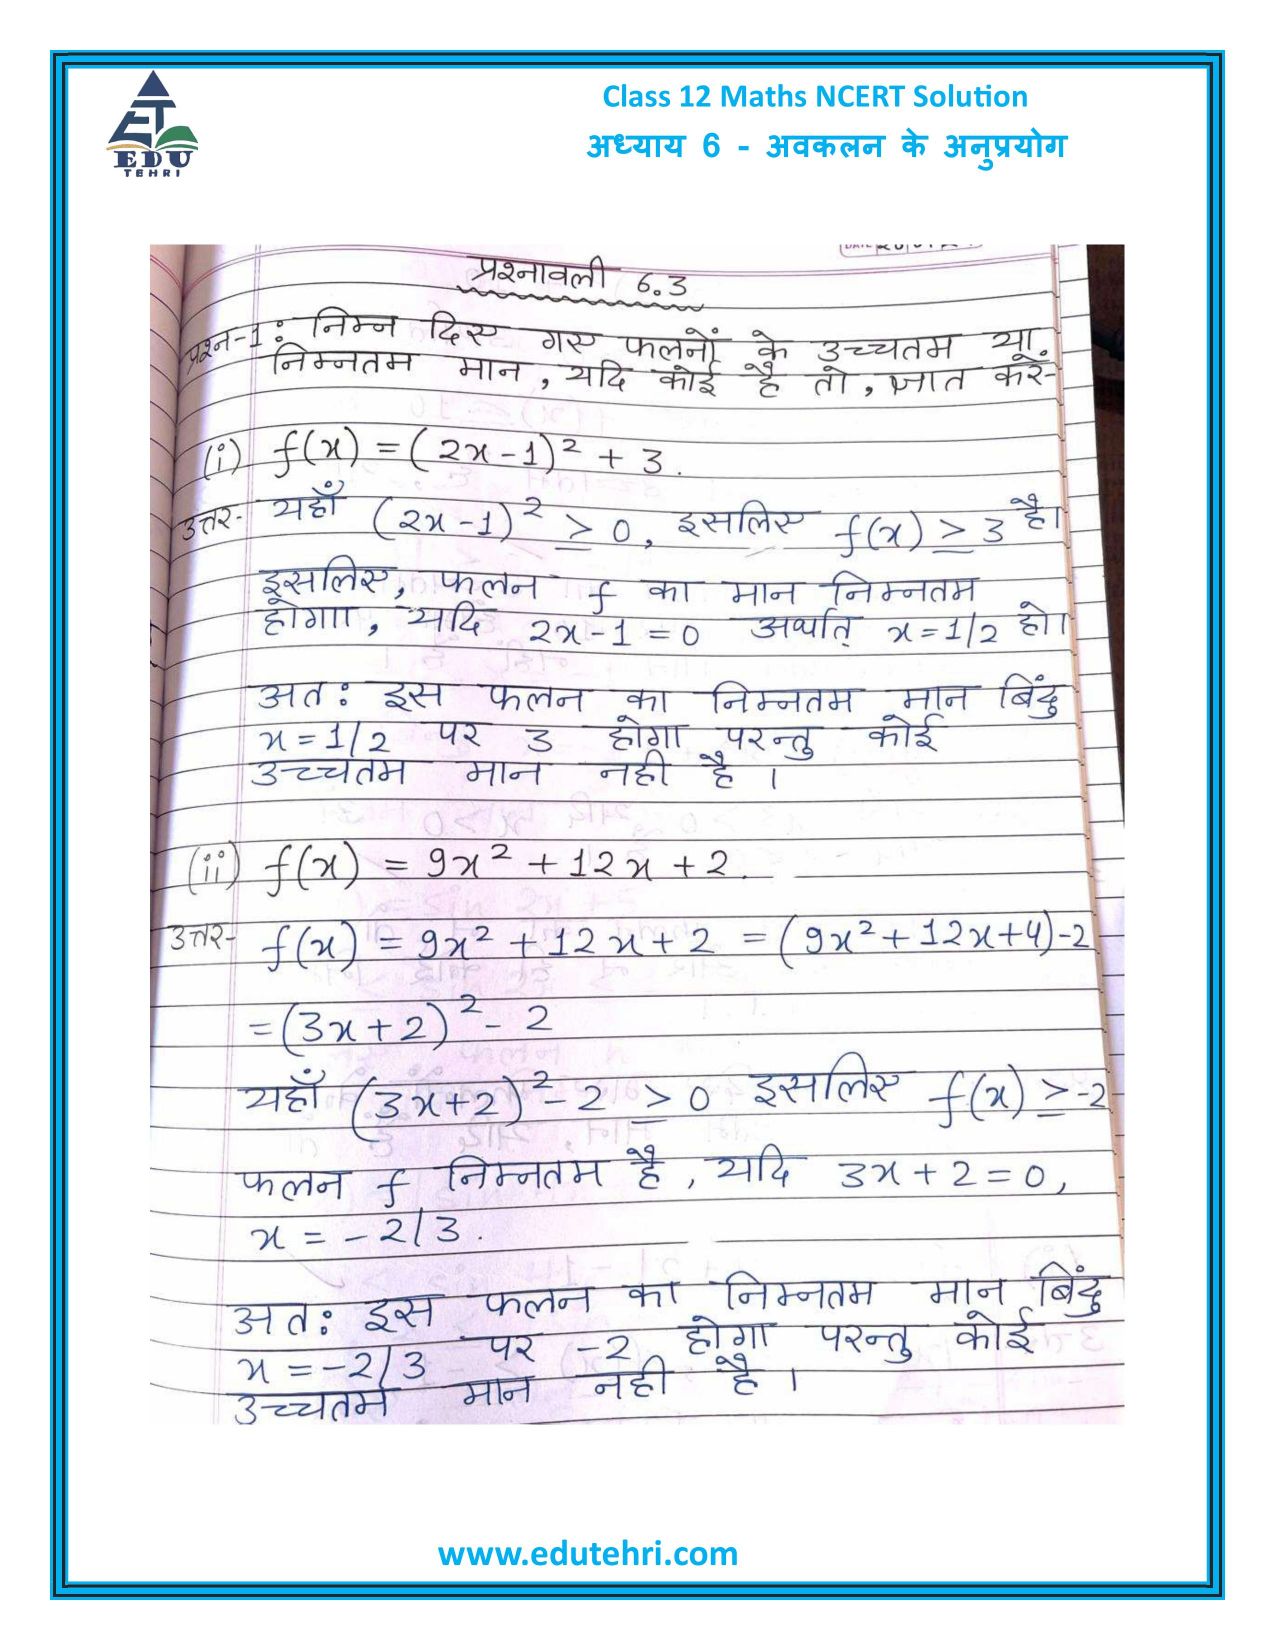 ET
EDU
TEHRI
Class 12 Maths NCERT Solution
अध्याय 6 - अवकलन के अनुप्रयोग
DATE
प्रश्नावली 6.3
प्रश्न-1: निम्न दिए गए फलनों के उच्चतम या
निम्नतम मान, यदि कोई है तो, ज्ञात करें-
(i) f(x) = (2x-1)² + 3.
उत्तर- यहाँ (2x-1)² ≥ 0, इसलिए f(x) ≥ 3 है।
इसलिए, फलन f का मान निम्नतम
होगाा, यदि 2x-1 = 0 अर्थात् x = 1/2 हो।
अत: इस फलन का निम्नतम मान बिंदु
x = 1/2 पर 3 होगा परन्तु कोई
उच्चतम मान नही है ।
(ii) f(x) = 9x² + 12x + 2.
उत्तर- f(x) = 9x² + 12x + 2 = (9x² + 12x + 4) - 2
= (3x + 2)² - 2
यहाँ (3x+2)² - 2 ≥ 0 इसलिए f(x) ≥ -2
फलन f निम्नतम है, यदि 3x + 2 = 0,
x = - 2/3.
अत: इस फलन का निम्नतम मान बिंदु
x = -2/3 पर -2 होगा परन्तु कोई
उच्चतम मान नही है ।
www.edutehri.com